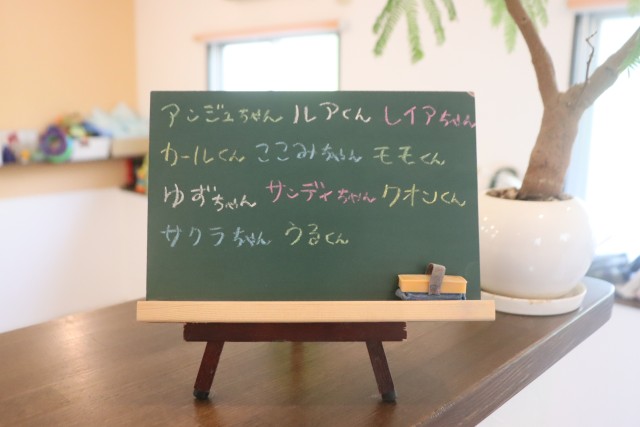 アンジュちゃん ルアくん レイアちゃん
カールくん ここみちゃん モモくん
ゆずちゃん サンディちゃん クオンくん
サクラちゃん うるくん